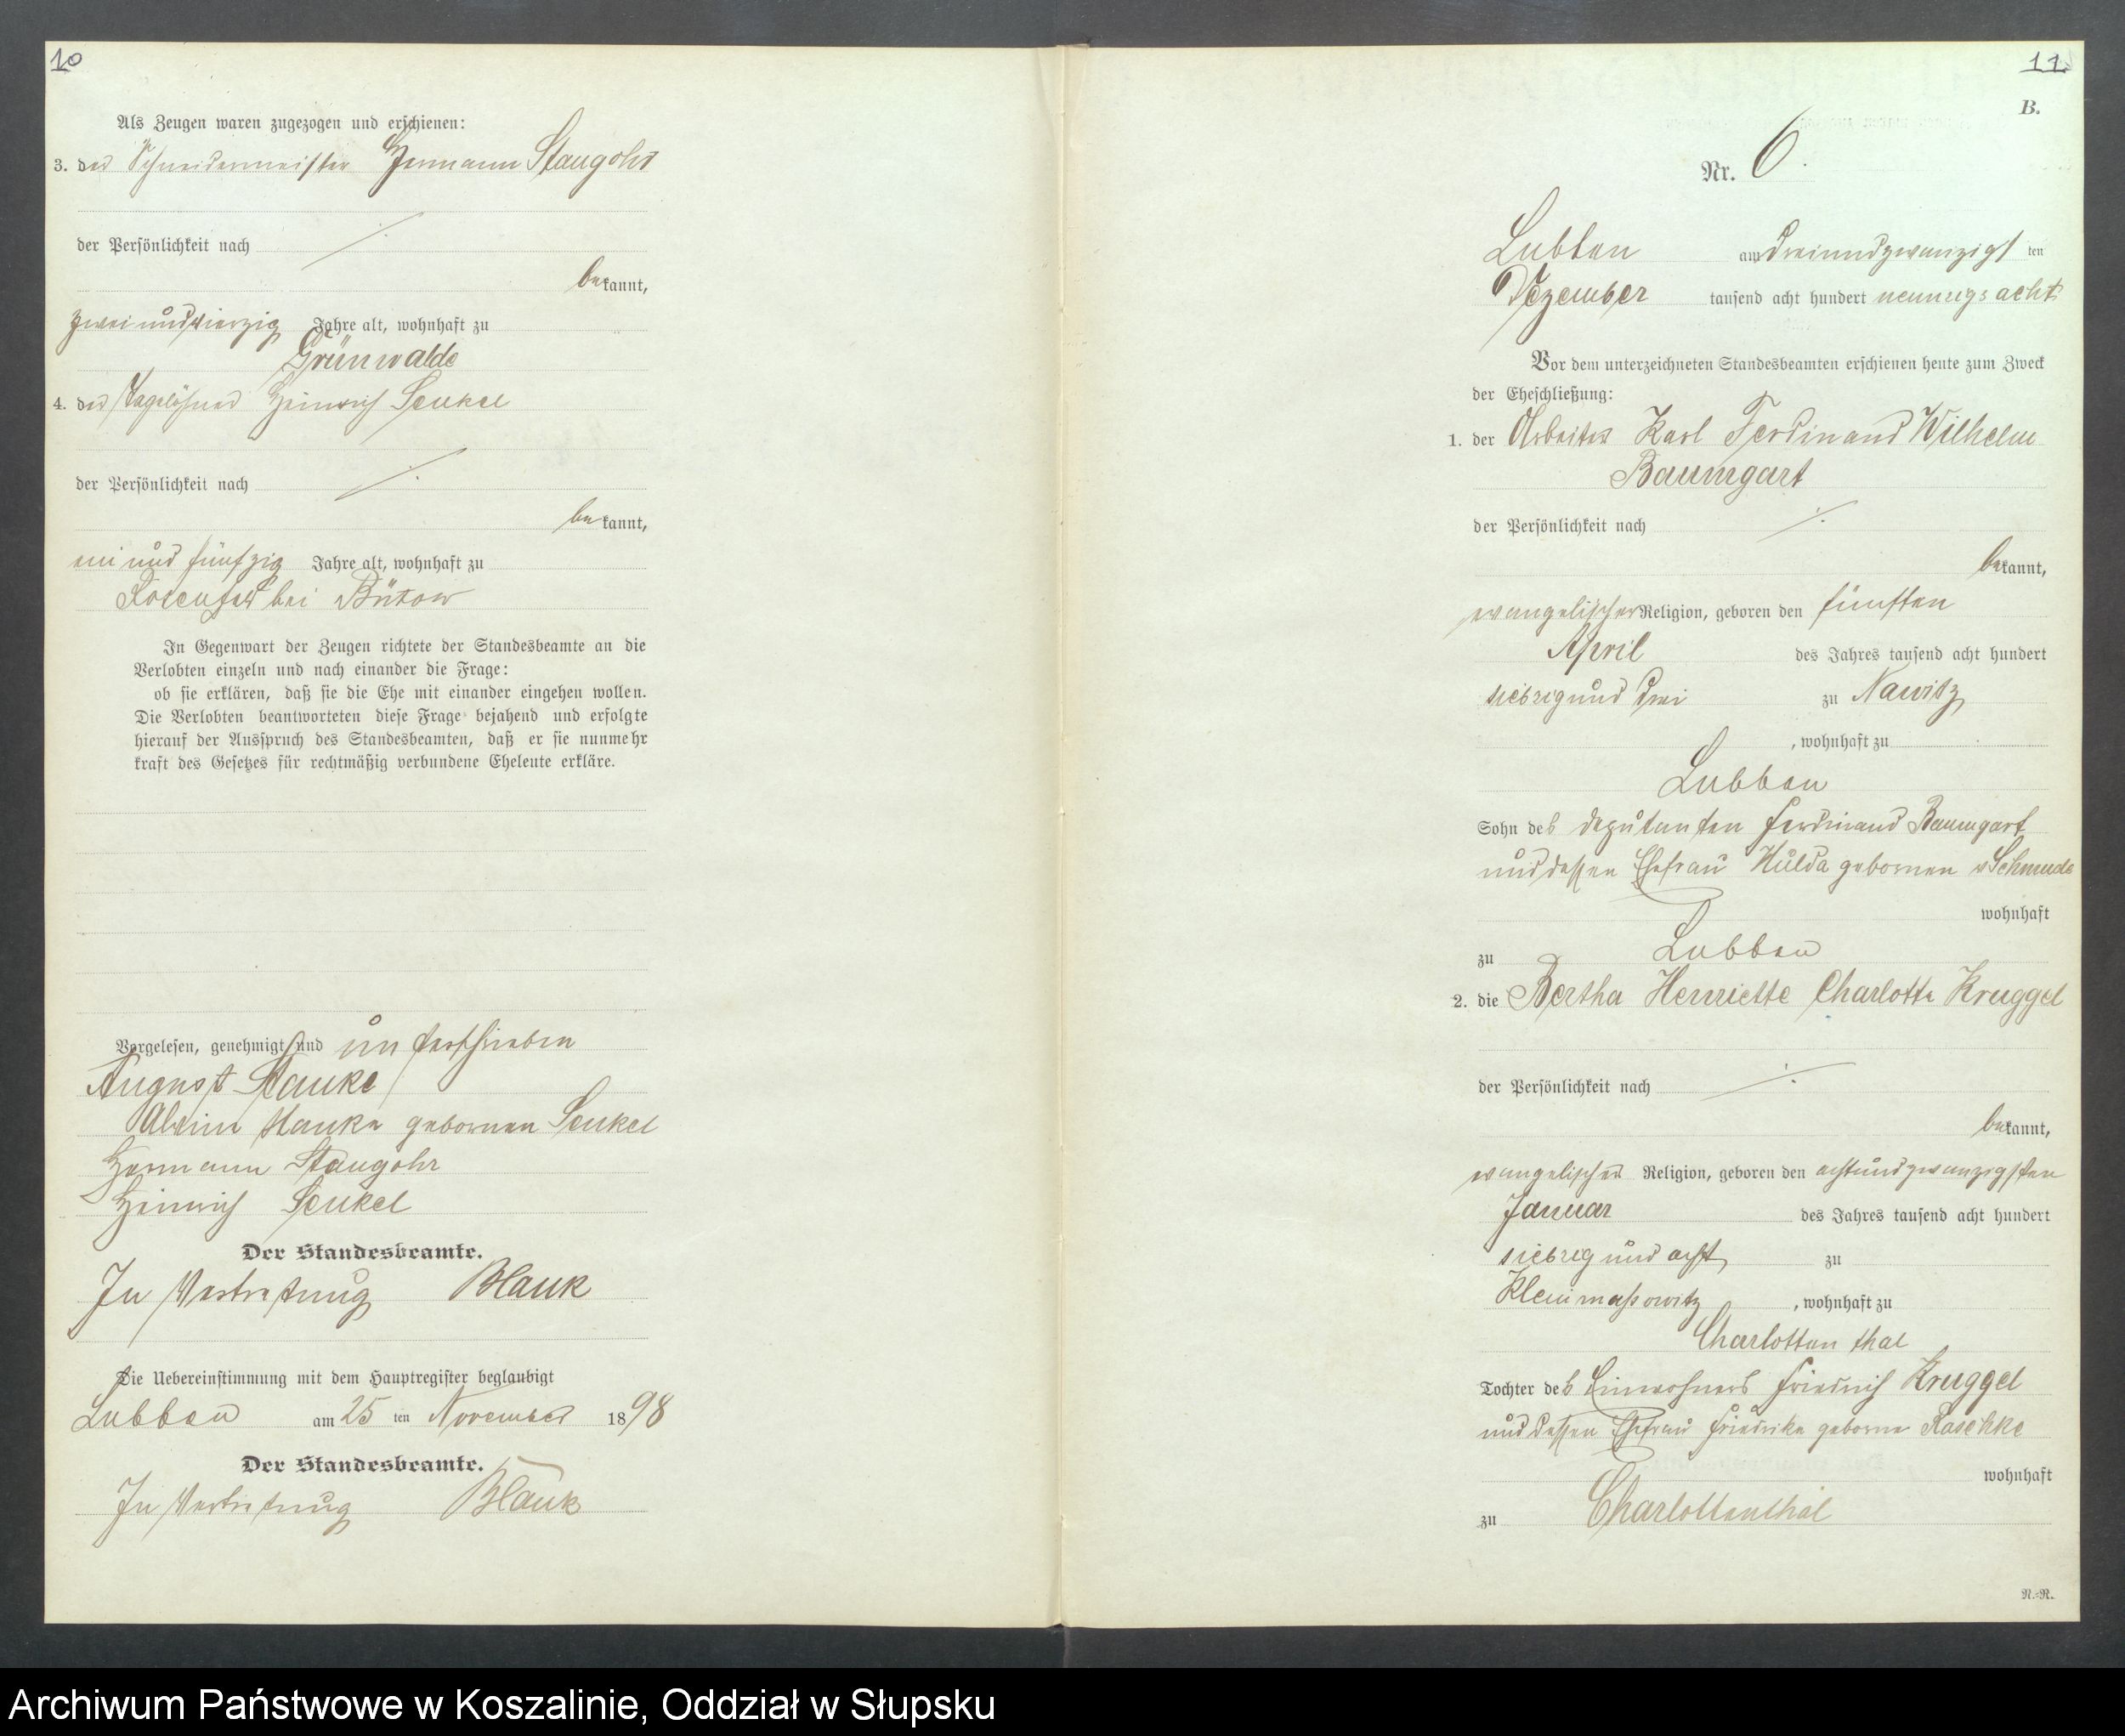 10
Als Zeugen waren zugezogen und erschienen:
3. der Schneidermeister Hermann Staugohr
der Persönlichkeit nach
bekannt,
zweiundvierzig Jahre alt, wohnhaft zu
Grünwalde
4. der Tagelöhner Heinrich Senkel
der Persönlichkeit nach
bekannt,
ein und fünfzig Jahre alt, wohnhaft zu
bei Bütow
In Gegenwart der Zeugen richtete der Standesbeamte an die
Verlobten einzeln und nach einander die Frage:
ob sie erklären, daß sie die Ehe mit einander eingehen wollen.
Die Verlobten beantworteten diese Frage bejahend und erfolgte
hierauf der Ausspruch des Standesbeamten, daß er sie nunmehr
kraft des Gesetzes für rechtmäßig verbundene Eheleute erkläre.
Vorgelesen, genehmigt und unterschrieben
August Stanke
Stanke geborenen Senkel
Hermann Staugohr
Heinrich Senkel
Der Standesbeamte.
In Vertretung Blank
Die Uebereinstimmung mit dem Hauptregister beglaubigt
Lubben am 25 ten November 1898
Der Standesbeamte.
In Vertretung Blank
11
B.
Nr. 6.
Lubben am dreiundzwanzigsten
Dezember tausend acht hundert neunzig acht
Vor dem unterzeichneten Standesbeamten erschienen heute zum Zweck
der Eheschließung:
1. der Arbeiter Karl Ferdinand Wilhelm
Baumgart
der Persönlichkeit nach
bekannt,
evangelischer Religion, geboren den fünften
April des Jahres tausend acht hundert
siebzig und drei zu Nawitz
, wohnhaft zu
Lubben
Sohn des Deputanten Ferdinand Baumgart
und dessen Ehefrau Hulda gebornen v Schmude
wohnhaft
zu Lubben
2. die Bertha Henriette Charlotte Kruggel
der Persönlichkeit nach
bekannt,
evangelischer Religion, geboren den achtundzwanzigsten
Januar des Jahres tausend acht hundert
siebzig und acht zu
Klein massowitz , wohnhaft zu
Charlottenthal
Tochter des Einwohners Friedrich Kruggel
und dessen Ehefrau Friedrike geborne Raschke
wohnhaft
zu Charlottenthal
N.-R.
Archiwum Państwowe w Koszalinie, Oddział w Słupsku